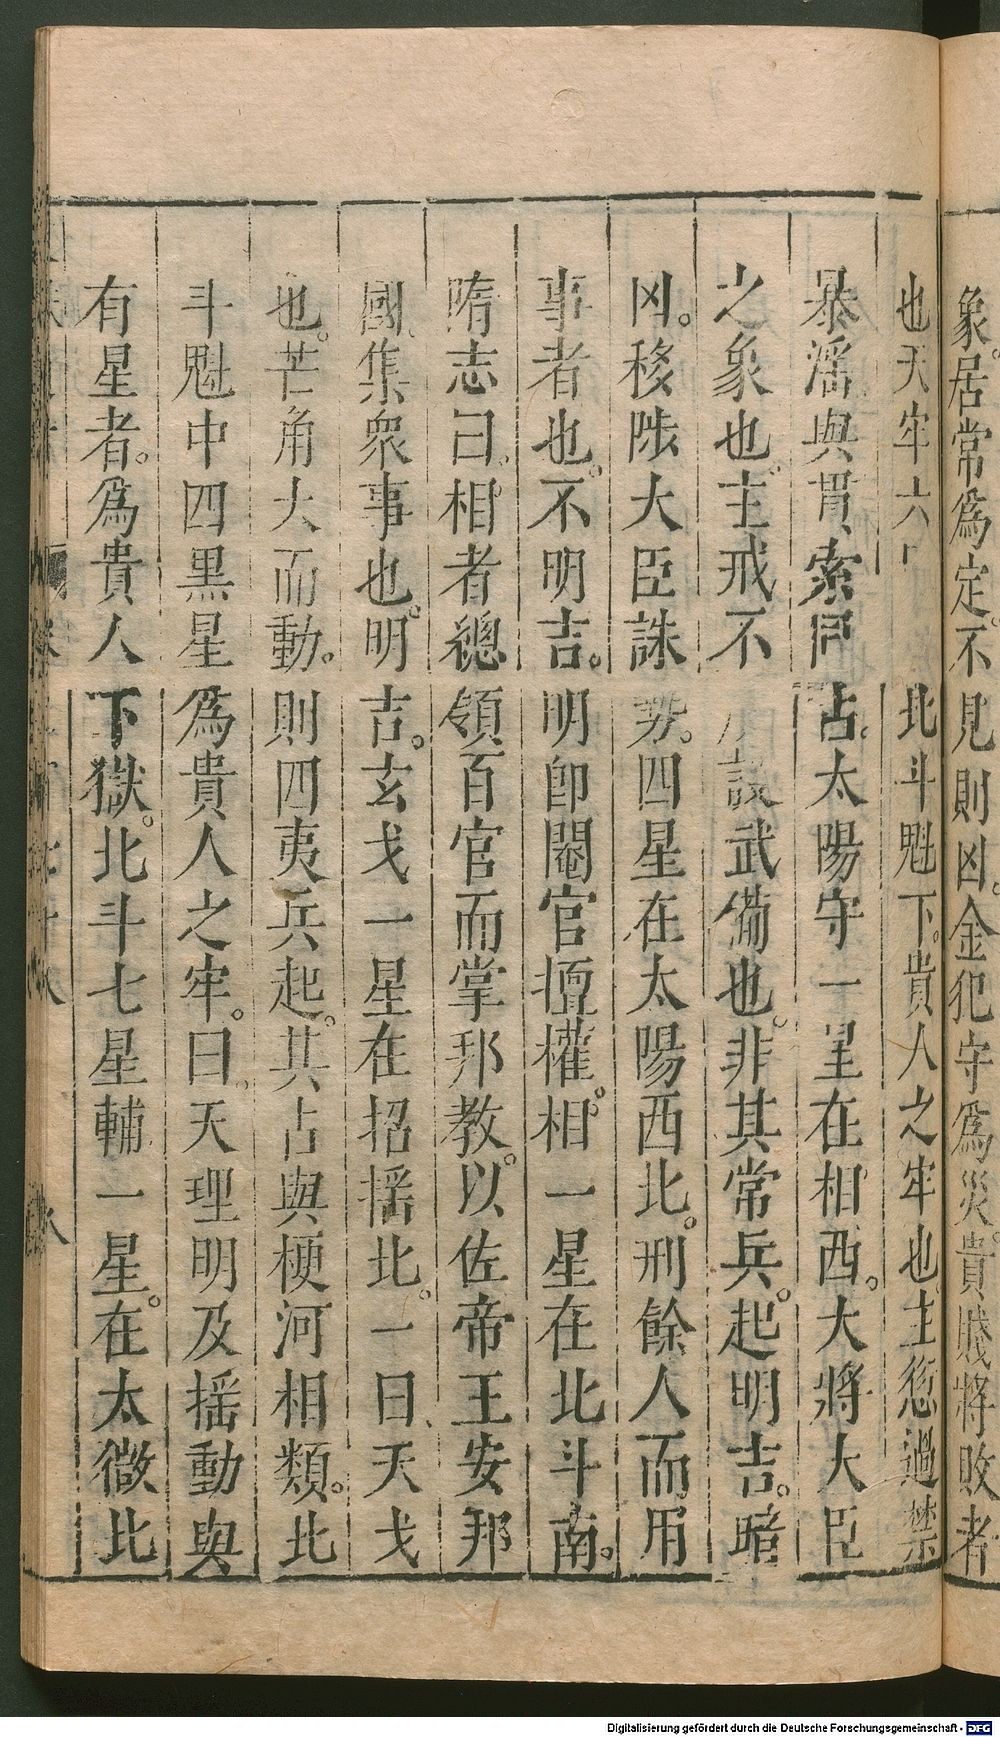 象居常爲定。不見則凶。金犯守爲災。貴賤將敗者
也天牢六 北斗魁下。貴人之牢也。主愆過禁
暴滛與貫索同占。太陽守一星在相西。大將大臣
之象也。主戒不 設武備也。非其常兵。起明吉。暗
凶。移陟大臣誅 四星在太陽西北。刑餘人而用
事者也。不明吉。明卽閹官擅權。相一星在北斗南。
隋志曰。相者總領百官而掌邦教。以佐帝王安邦
國。集衆事也。明吉。玄戈一星在招揺北。一曰天戈
也。芒角大而動。則四夷兵起。其占與梗河相類。北
斗魁中四黒星爲貴人之牢。曰天理明及揺動與
有星者。爲貴人下獄。北斗七星輔一星。在太微北
Digitalisierung gefördert durch die Deutsche Forschungsgemeinschaft - DFG